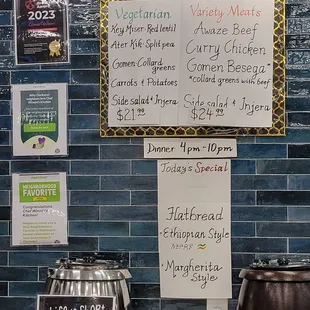 2023
Vegetarian
Key Miser-Red lentil
Ater Kik-Split pea
Gomen-Collard greens
Carrots & Potatoes
Side salad & Injera
$21.99
Variety Meats
Awaze Beef
Curry Chicken
Gomen Besega*
*collard greens with beef
Side salad & Injera
$24.99
Dinner 4pm-10pm
Today's Special
Flatbread
-Ethiopian Style
-Margherita
Style
NEIGHBORHOOD
FAVORITE